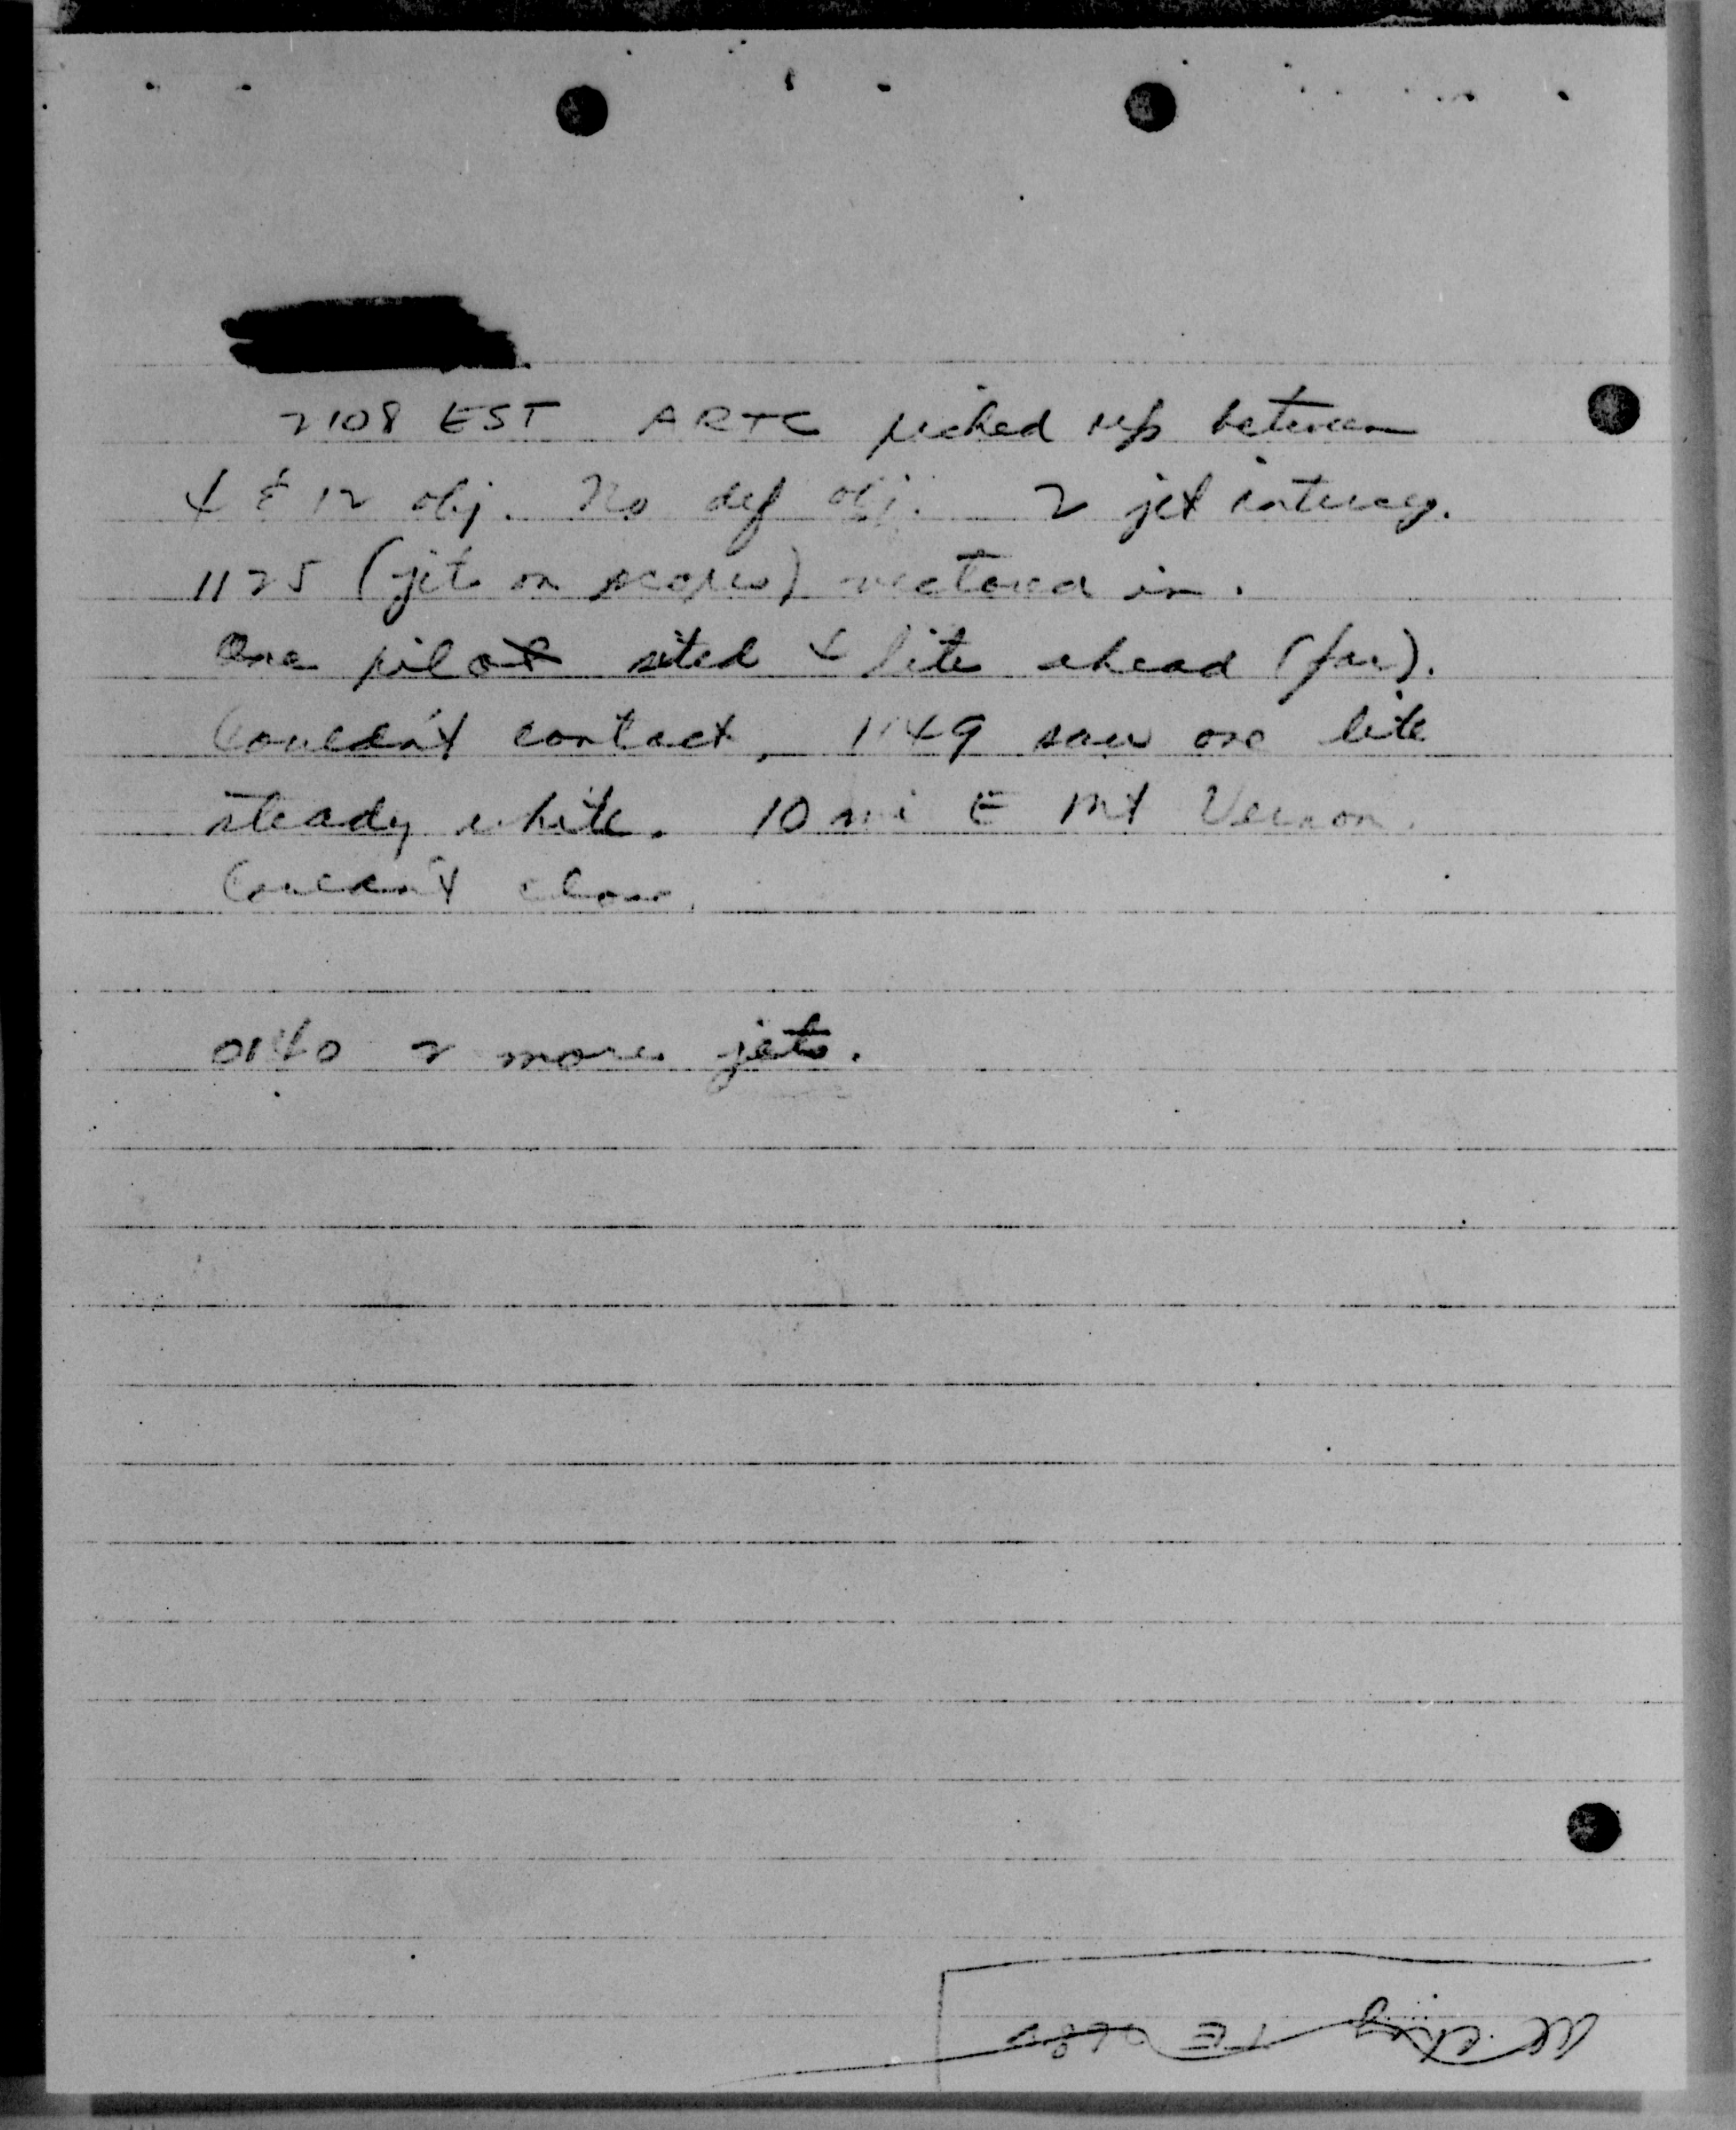 2108 EST ARTC picked up between
4 & 12 obj. No def obj. 2 jet intercep.
1125 (jets on scopes) vectored in.
One pilot sited 4 lite ahead (far).
Couldn't contact. 1149 saw one lite
steady white. 10 mi E Mt Vernon.
Couldn't close.
0140 2 more jets.